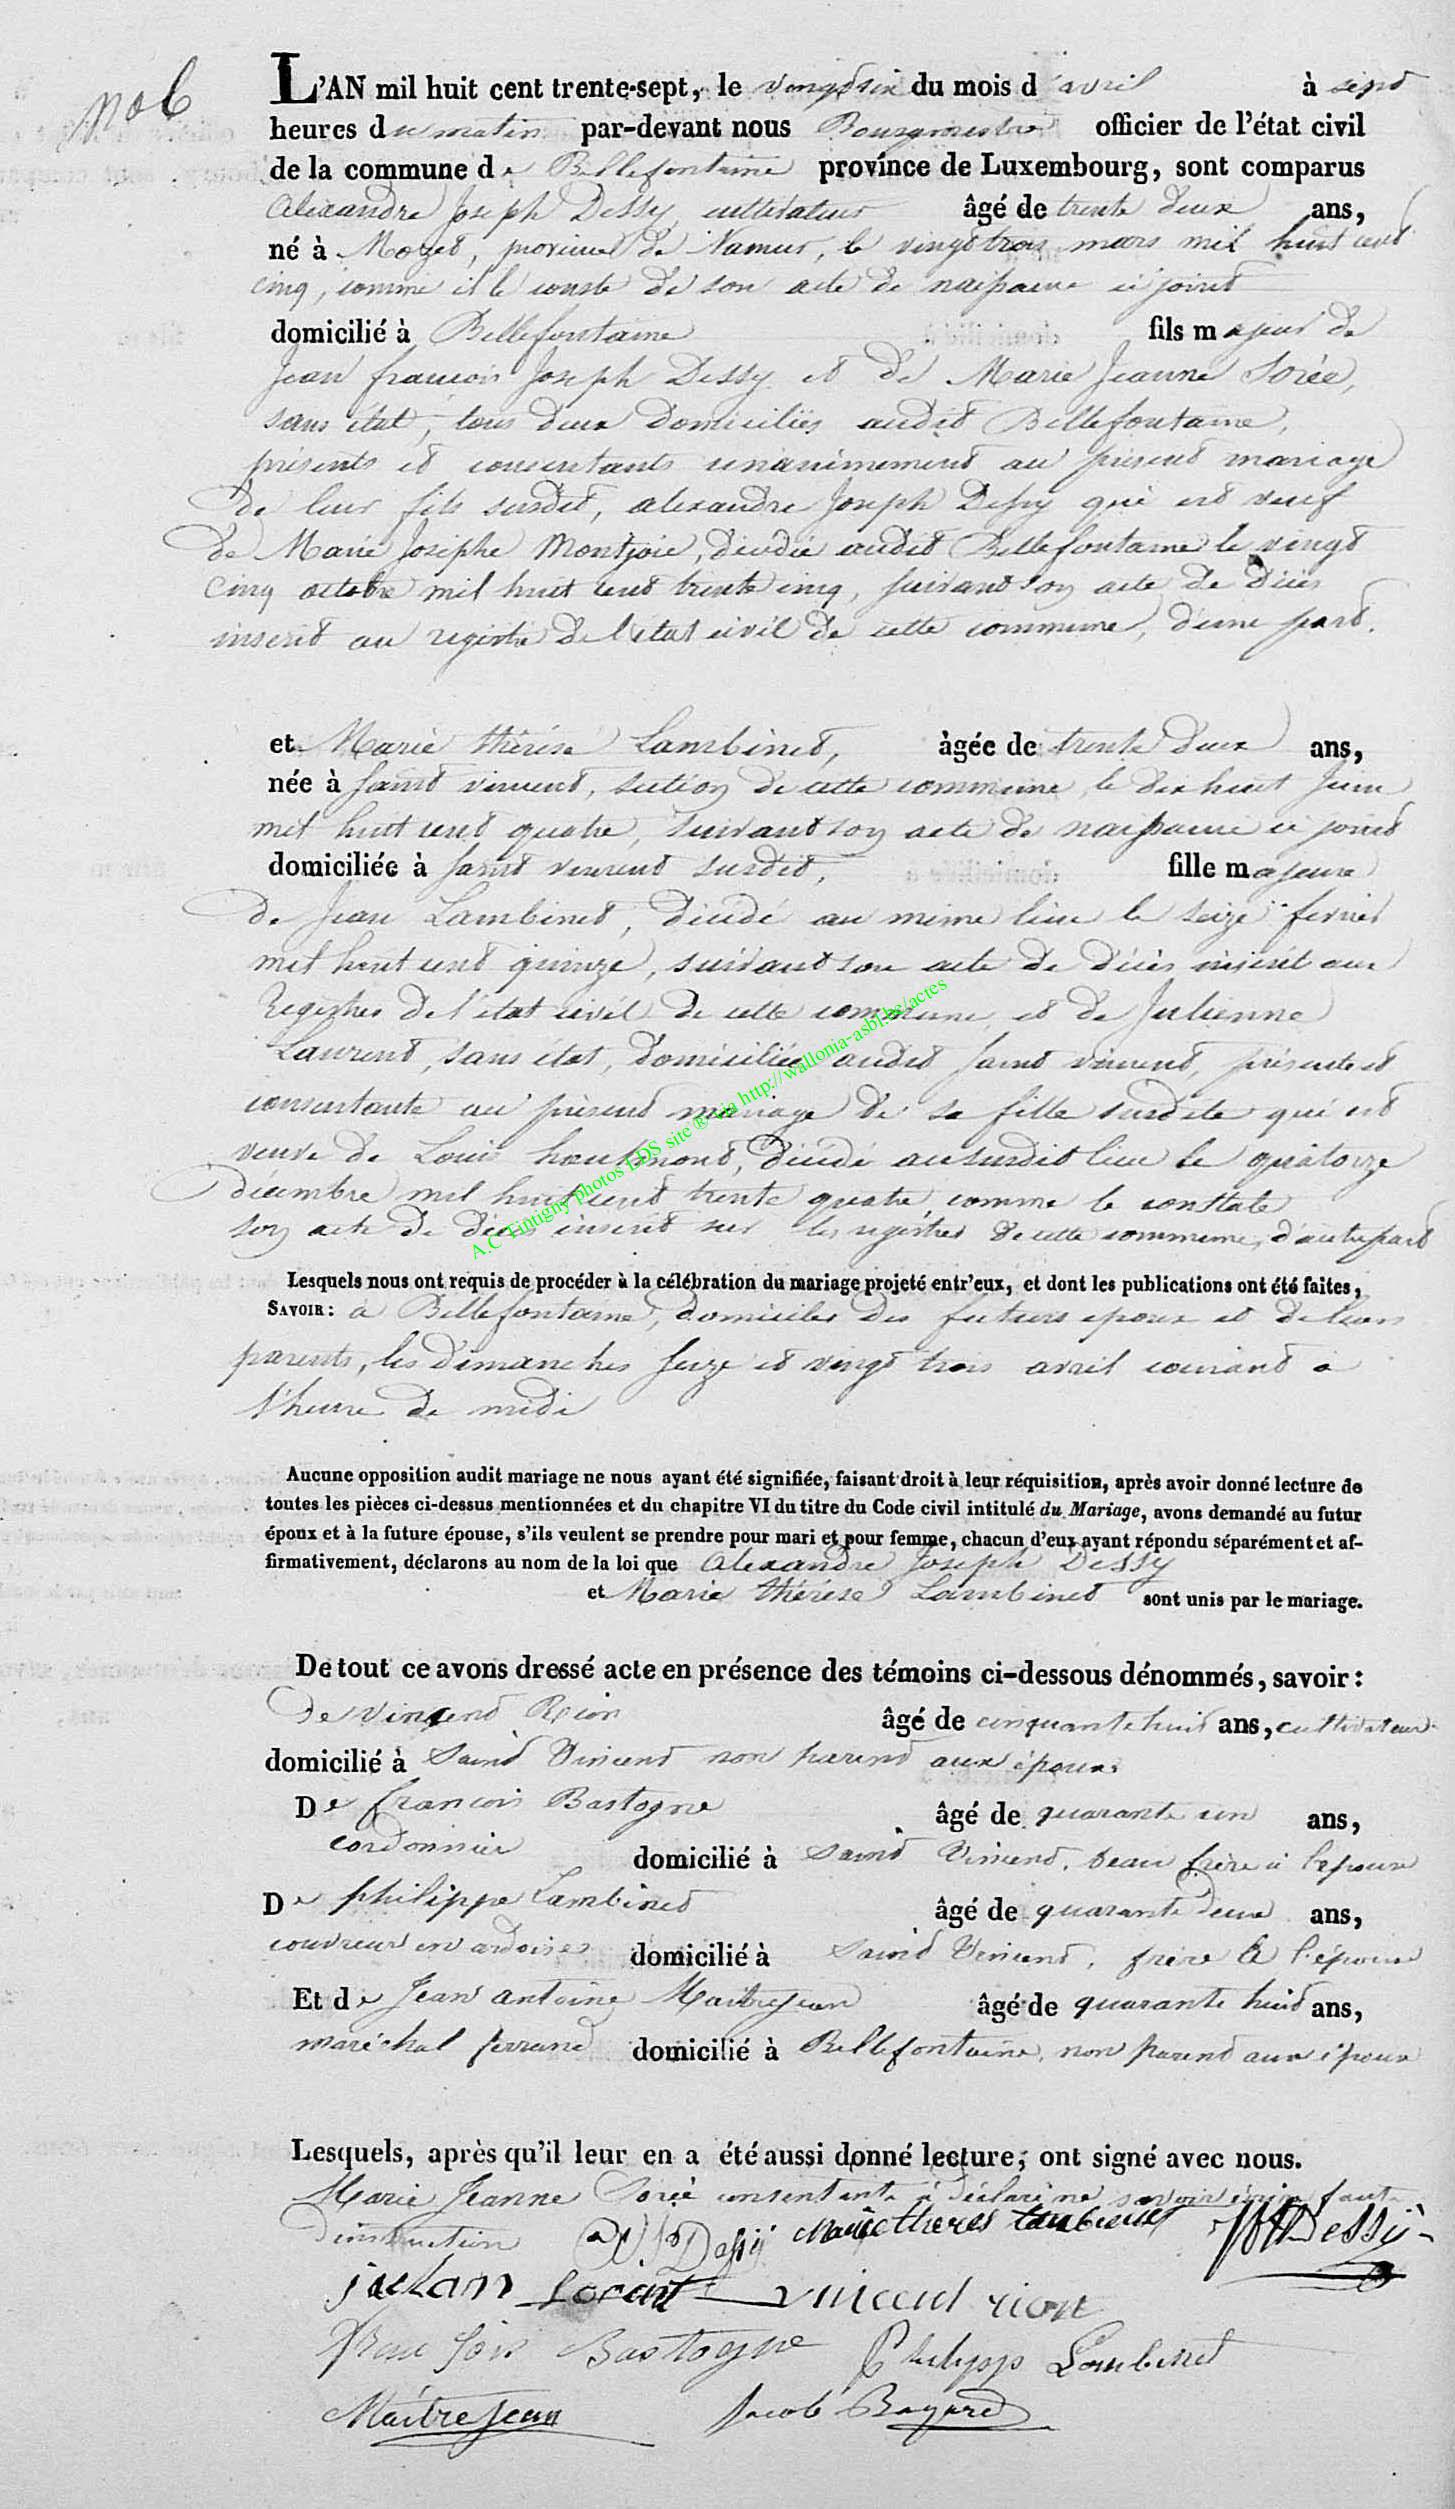 No 6
L'AN mil huit cent trente-sept, le vingt six du mois d'avril à sept
heures du matin par-devant nous Bourgmestre officier de l'état civil
de la commune de Bellefontaine province de Luxembourg, sont comparus
Alexandre Joseph Dessy, cultivateur âgé de trente deux ans,
né à Mozet, province de Namur, le vingt trois mars mil huit cent
cinq, comme il le conste de son acte de naissance ci joint
domicilié à Bellefontaine fils majeur de
Jean françois Joseph Dessy et de Marie Jeanne Sorée,
sans état, tous deux domiciliés audit Bellefontaine,
présents et consentants unanimement au présent mariage
de leur fils susdit, alexandre Joseph Dessy qui est veuf
de Marie Josèphe Montjoie, décédée audit Bellefontaine le vingt
cinq octobre mil huit cent trente cinq, suivant son acte de décès
inscrit au registre de l'état civil de cette commune, d'une part.
et Marie thérèse Lambinet, âgée de trente deux ans,
née à saint vincent, section de cette commune, le dix huit Juin
mil huit cent quatre, suivant son acte de naissance ci joint
domiciliée à saint vincent susdit, fille majeure
de Jean Lambinet, décédé au même lieu le seize fevrier
mil huit cent quinze, suivant son acte de décès inscrit aux
Registres de l'état civil de cette commune et de Julienne
Laurent, sans état, domiciliée audit saint vincent, présente et
consentante au présent mariage de sa fille susdite qui est
veuve de Louis hautmont, décédé au susdit lieu le quatorze
décembre mil huit cent trente quatre, comme le constate
son acte de décès inscrit sur les registres de cette commune, d'autre part
A.C Tintigny photos LDS site ® via http://wallonia-asbl.be/actes
Lesquels nous ont requis de procéder à la célébration du mariage projeté entr'eux, et dont les publications ont été faites,
SAVOIR: à Bellefontaine, domiciles des futurs epoux et de leurs
parents, les dimanches seize et vingt trois avril courant à
l'heure de midi
Aucune opposition audit mariage ne nous ayant été signifiée, faisant droit à leur réquisition, après avoir donné lecture de
toutes les pièces ci-dessus mentionnées et du chapitre VI du titre du Code civil intitulé du Mariage, avons demandé au futur
époux et à la future épouse, s'ils veulent se prendre pour mari et pour femme, chacun d'eux ayant répondu séparément et af-
firmativement, déclarons au nom de la loi que Alexandre Joseph Dessy
et Marie thérèse Lambinet sont unis par le mariage.
De tout ce avons dressé acte en présence des témoins ci-dessous dénommés, savoir:
De Vincent Rion âgé de cinquante huit ans, cultivateur
domicilié à Saint Vincent non parent aux époux
De françois Bastogne âgé de quarante un ans,
cordonnier domicilié à Saint Vincent, beau frère à l'epouse
De philippe Lambinet âgé de quarante deux ans,
couvreur en ardoises domicilié à Saint Vincent, frère à l'épouse
Et de Jean antoine Maitrejean âgé de quarante huit ans,
maréchal ferrant domicilié à Bellefontaine, non parent aux époux
Lesquels, après qu'il leur en a été aussi donné lecture, ont signé avec nous.
Marie Jeanne Sorée consentante a déclaré ne savoir écrire faute
d'instruction Dessy Marie theres Lambinet Dessy
julan Lorant vincent rion
fran sois Bastogne Philipp Lambinet
Maitrejean Jacob Bayard